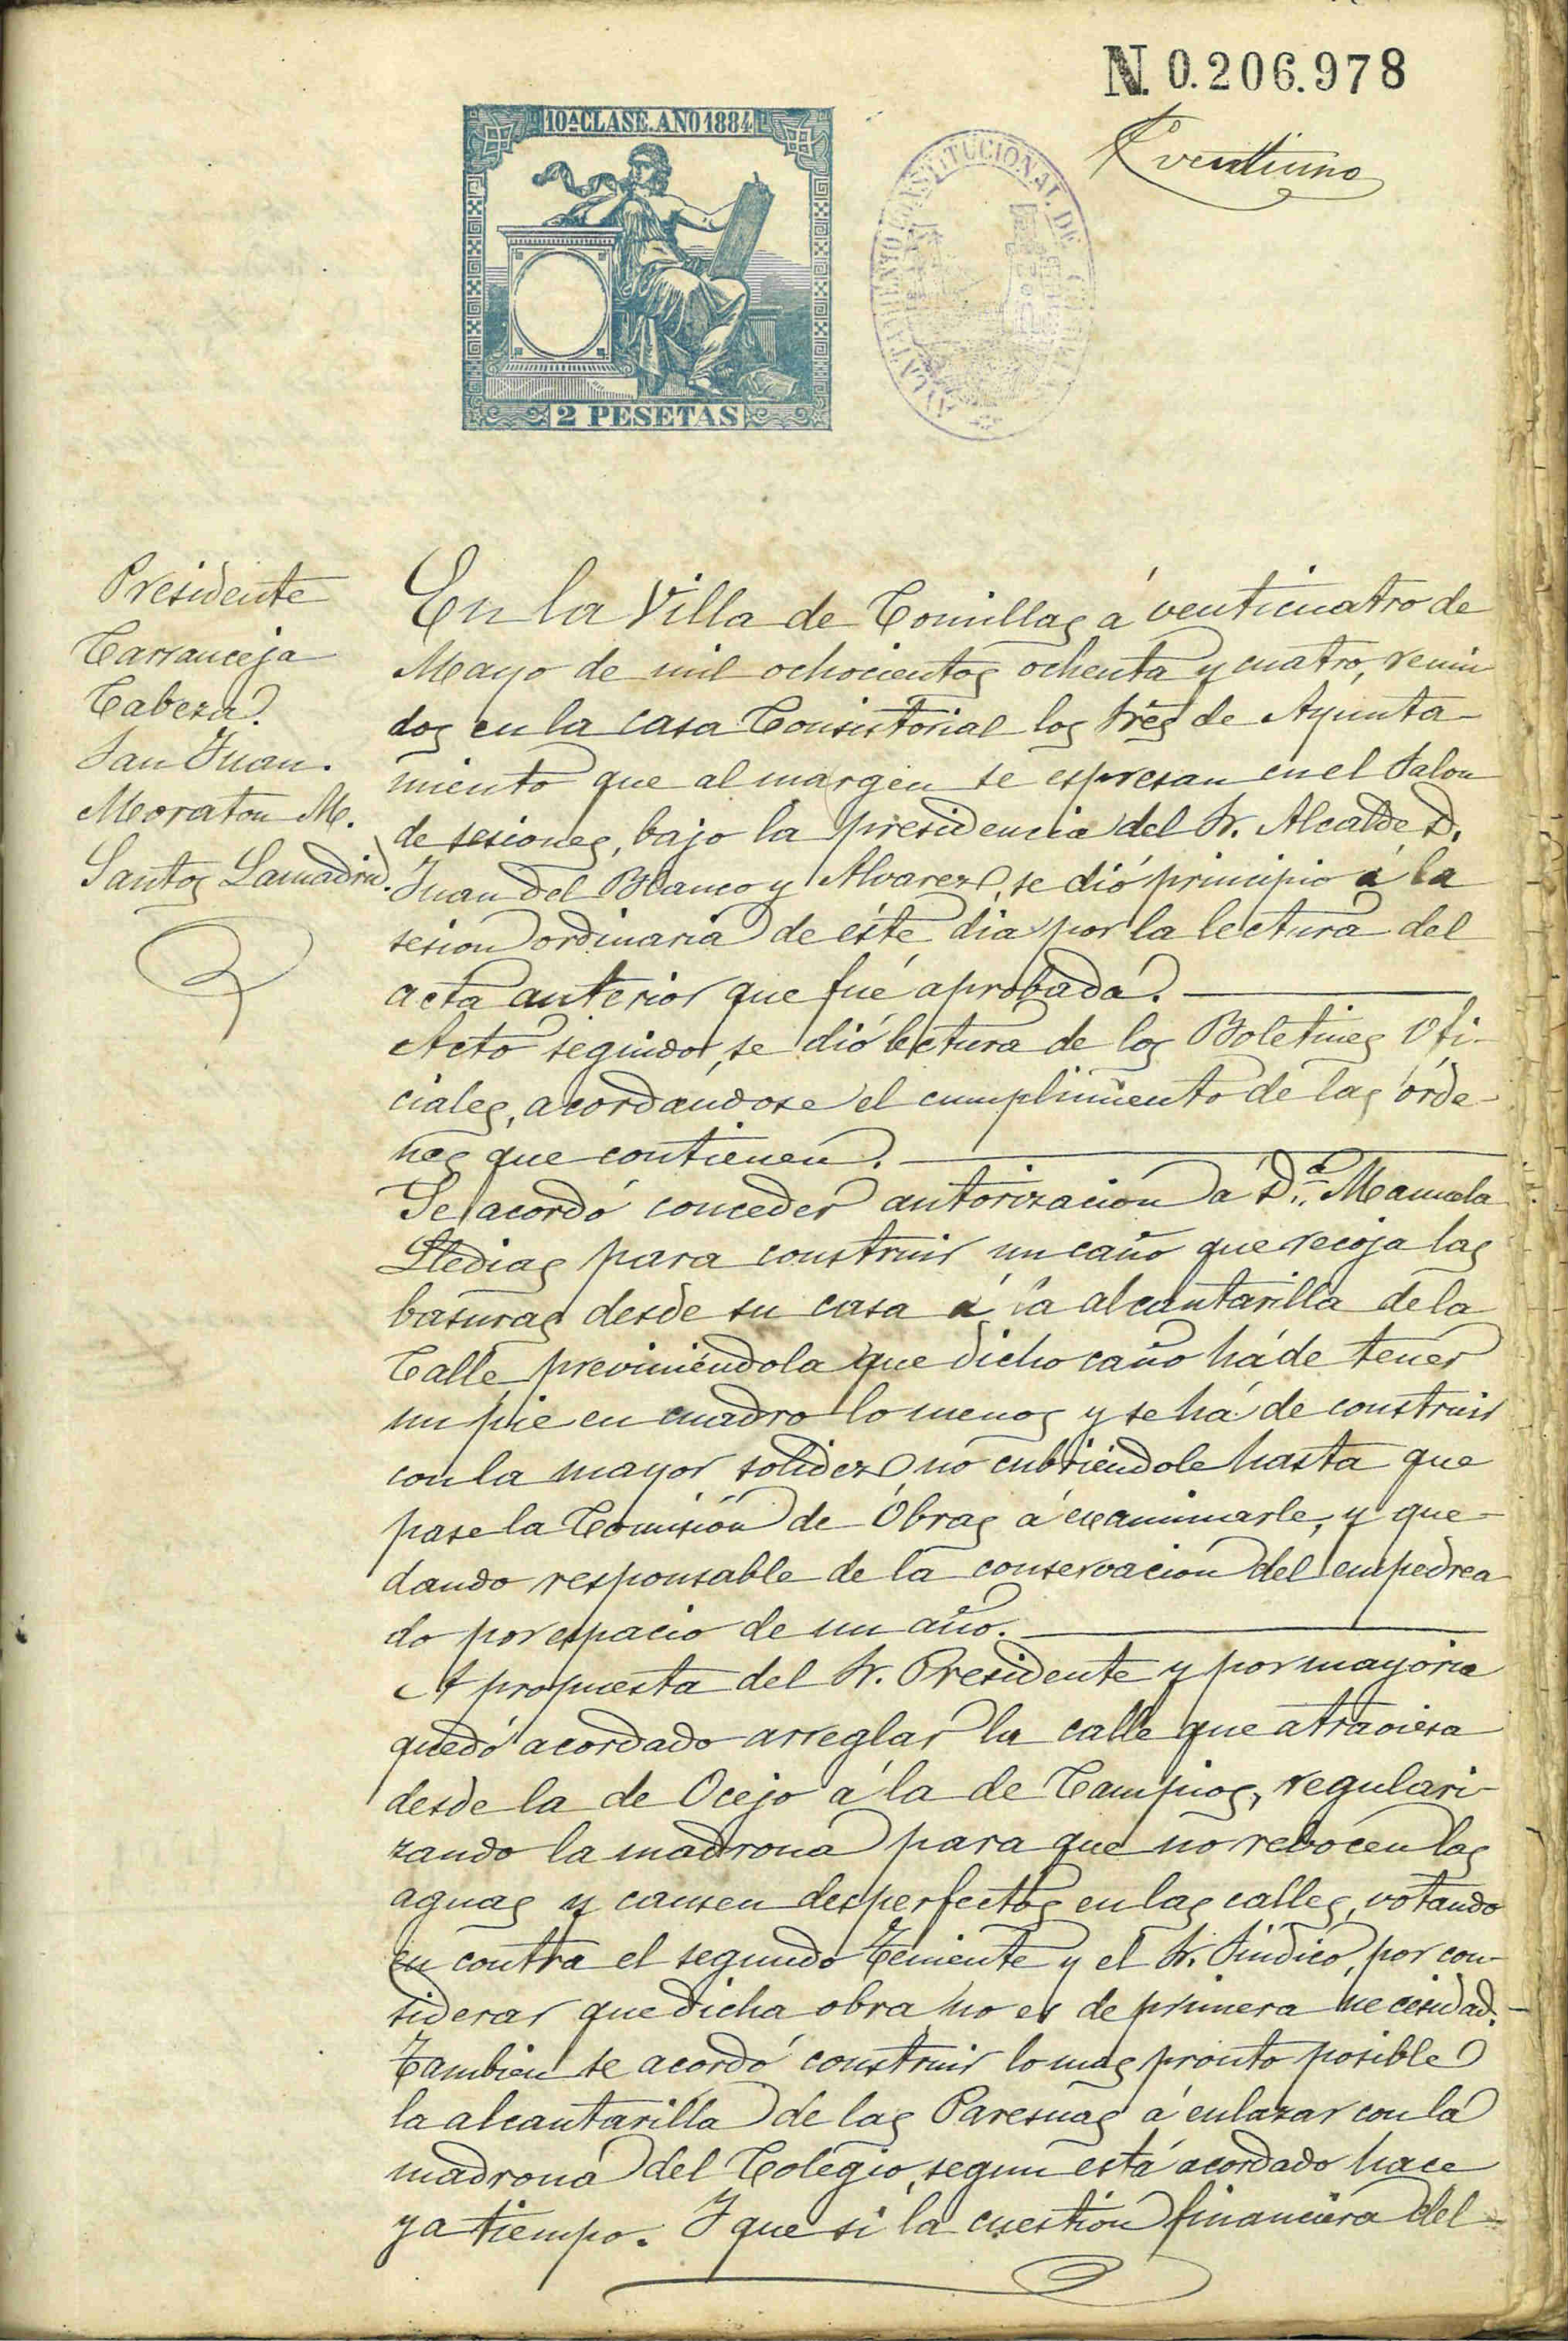 N. 0.206.978
10ª CLASE. AÑO 1884
2 PESETAS
AYUNTAMIENTO CONSTITUCIONAL DE
ventiuno
Presidente
Carranceja
Cabeza.
San Juan.
Moraton M.
Santos Lamadrid.
En la Villa de Comillas á venticuatro de
Mayo de mil ochocientos ochenta y cuatro, reuni
dos en la casa Consistorial los Sres de Ayunta-
miento que al margen se espresan en el Salon
de sesiones, bajo la presidencia del Sr. Alcalde D.
Juan del Blanco y Alvarez, se dió principio á la
sesion ordinaria de éste dia por la lectura del
acta anterior que fué aprobada.
Acto seguido, se dió lectura de los Boletines Ofi-
ciales, acordándose el cumplimiento de las órde-
nes que contienen.
Se acordó conceder autorizacion á D.ª Manuela
Lledias para construir un caño que recoja las
basuras desde su casa á la alcantarilla de la
Calle previniéndola que dicho caño há de tener
un pie en cuadro lo menos y se há de construir
con la mayor solidez no cubriéndole hasta que
pase la Comisión de Obras á examinarle, y que-
dando responsable de la conservacion del empedrea
do por espacio de un año.
A propuesta del Sr. Presidente y por mayoria
quedó acordado arreglar la calle que atraviesa
desde la de Ocejo á la de Campios, regulari-
zando la madrona para que no rebocen las
aguas y causen desperfectos en las calles, votando
en contra el segundo Teniente y el Sr. Síndico, por con-
siderar que dicha obra no es de primera necesidad.
Tambien se acordó construir lo mas pronto posible
la alcantarilla de las Paresuas á enlazar con la
madrona del Colegio, segun está acordado hace
ya tiempo. Y que si la cuestion financiera del